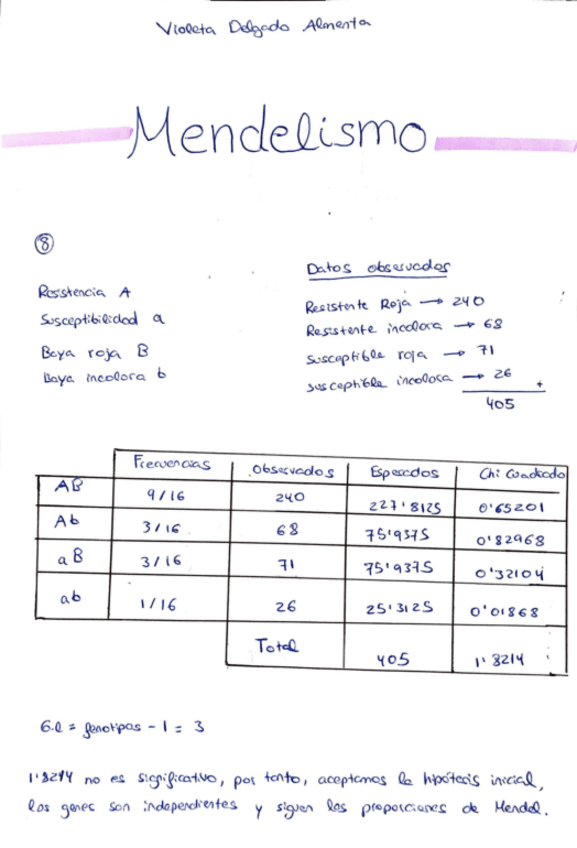 Violeta Delgado Almenta
Mendelismo
8
Resistencia A
Susceptibilidad a
Baya roja B
Baya incolora b
Datos observados
Resistente Roja → 240
Resistente incolora → 68
Susceptible roja → 71
susceptible incolora → 26
+
405
Frecuencias Observados Esperados Chi Cuadrado
AB 9/16 240 227'8125 0'65201
Ab 3/16 68 75'9375 0'82968
aB 3/16 71 75'9375 0'32104
ab 1/16 26 25'3125 0'01868
Total 405 1'8214
G.l = fenotipos - 1 = 3
1'8214 no es significativo, por tanto, aceptamos la hipótesis inicial,
los genes son independientes y siguen las proporciones de Mendel.